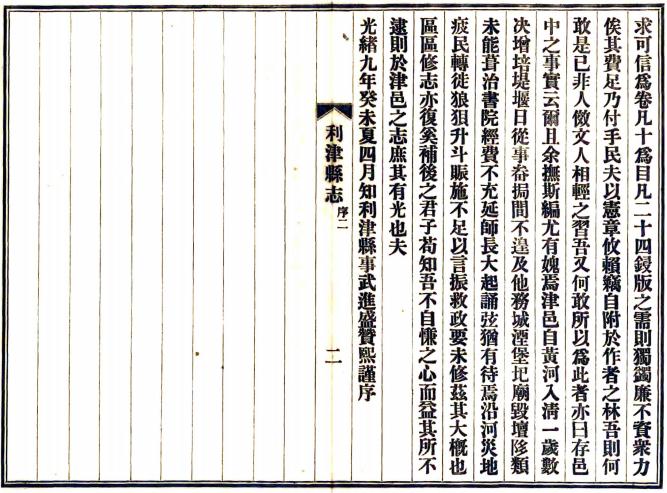 求可信爲卷凡十爲目凡二十四鋟版之需則獨蠲廉不資衆力
俟其費足乃付手民夫以憲章攸賴竊自附於作者之林吾則何
敢是已非人儌文人相輕之習吾又何敢所以爲此者亦曰存邑
中之事實云爾且余撫斯編尤有媿焉津邑自黃河入清一歲數
决增培堤堰日從事畚挶間不遑及他務城湮堡圮廟毀壇陊類
未能葺治書院經費不充延師長大起誦弦猶有待焉沿河災地
疲民轉徙狼狽升斗賑施不足以言振救政要未修茲其大概也
區區修志亦復奚補後之君子苟知吾不自慊之心而益其所不
逮則於津邑之志庶其有光也夫
光緒九年癸未夏四月知利津縣事武進盛贊熙謹序
利津縣志 序二 二